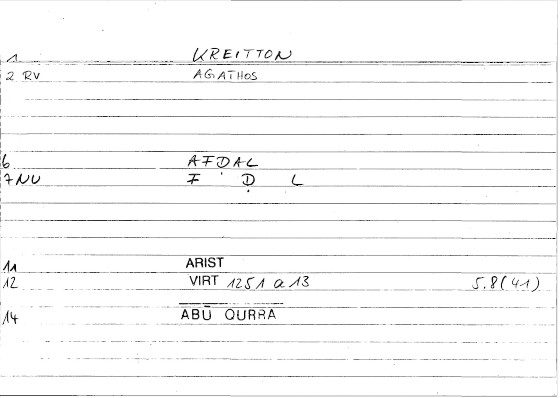 1 KREITTON
2 RV AGATHOS
6 AFḌAL
7 NU F Ḍ L
11 ARIST
12 VIRT 1251 a 13 5.8(41)
14 ABŪ QURRA